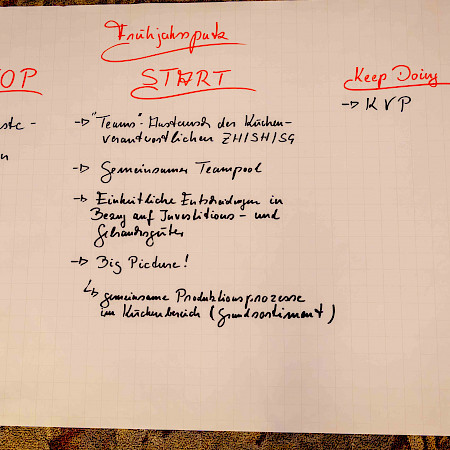 Frühjahrsputz
OP
START
Keep Doing
→ "Teams"-Austausch der Küchen-
verantwortlichen ZH/SH/SG
→ Gemeinsamer Teampool
→ Einheitliche Entscheidungen in
Bezug auf Investitions- und
Gebrauchsgüter
→ Big Picture!
↳ gemeinsame Produktionsprozesse
im Küchenbereich (Grundsortiment)
→ KVP